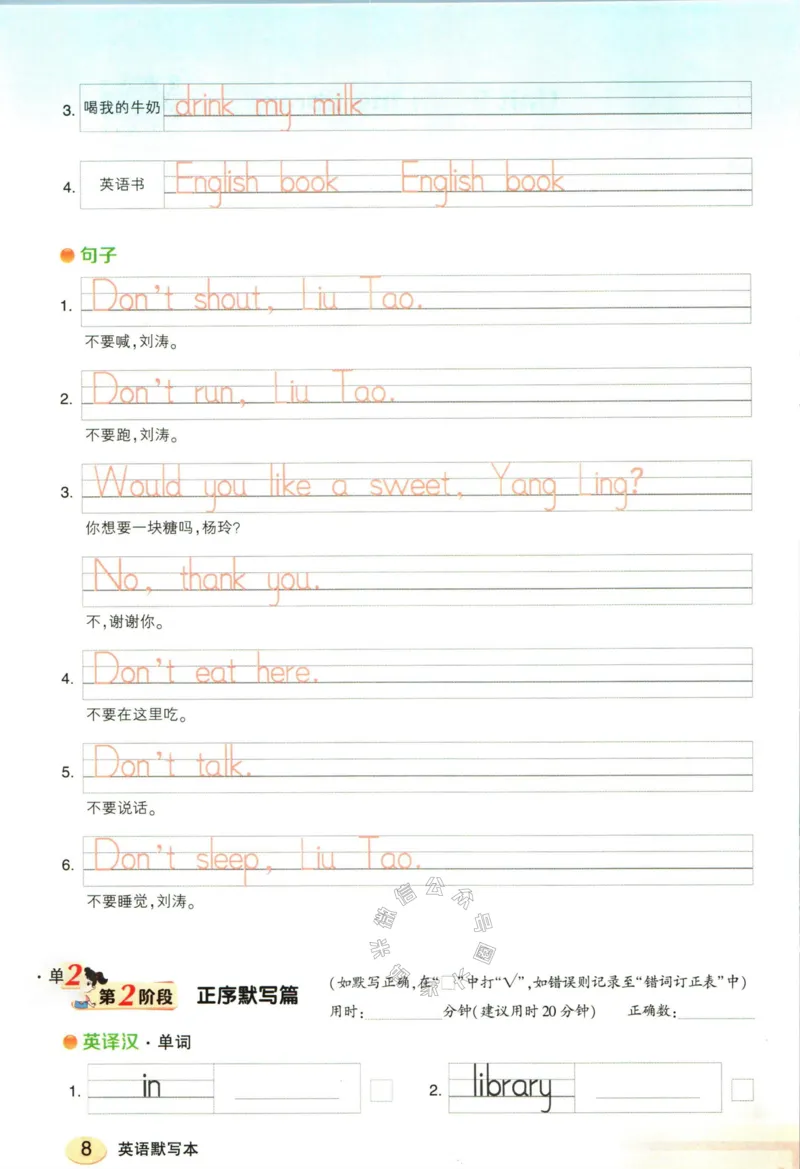 3. 喝我的牛奶 drink my milk
4. 英语书 English book English book
句子
1. Don't shout, Liu Tao.
不要喊,刘涛。
2. Don't run, Liu Tao.
不要跑,刘涛。
3. Would you like a sweet, Yang Ling?
你想要一块糖吗,杨玲?
No, thank you.
不,谢谢你。
4. Don't eat here.
不要在这里吃。
5. Don't talk.
不要说话。
6. Don't sleep, Liu Tao.
不要睡觉,刘涛。
·单2
第2阶段 正序默写篇 (如默写正确,在“□”中打“√”,如错误则记录至“错词订正表”中)
用时: 分钟(建议用时20分钟) 正确数:
英译汉·单词
1. in 2. library
8 英语默写本